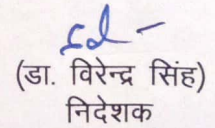 (डा. विरेन्द्र सिंह)
निदेशक